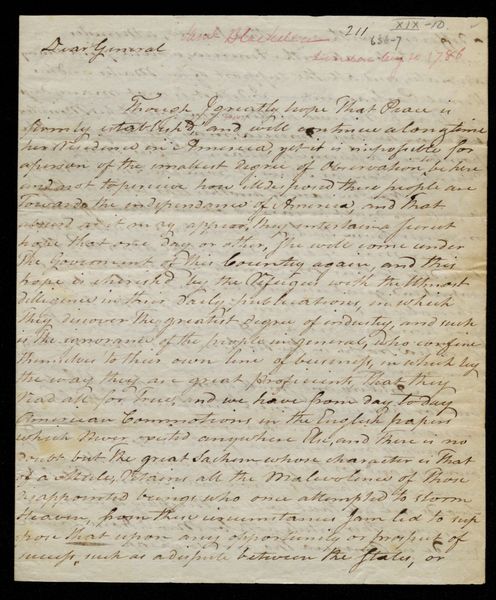 211 XIX-10
636-7
Dear General
London Aug 10 1786
Though I greatly hope That Peace is
firmly established, and will continue a long time
her Residence in America, yet it is impossible for
a person of the smallest degree of Observation to be here
and not to perceive how illdisposed these people are
Towards the independance of America, and that
as it may appear, they entertain a secret
hope that one day or other, She will come under
The Government of this Country again, and this
hope is cherish'd by the Refugees with the Utmost
diligence in their daily publications, in which
they discover the greatest degree of industry, and such
is the ignorance of the people in general, who confine
themselves to their own line of business, in which by
the way they are great proficients, that they
read all for true, and we have from day to day
American Commotions in the English papers
which Never existed anywhere Else, and there is no
doubt but the great Sachem whose character is That
of a Mule, retains all the Malevolence of Those
disappointed beings who once attempted to storm
Heaven, from these circumstances I am led to sup
pose that upon any opportunity or prospect of
success, such as a dispute between the States, or